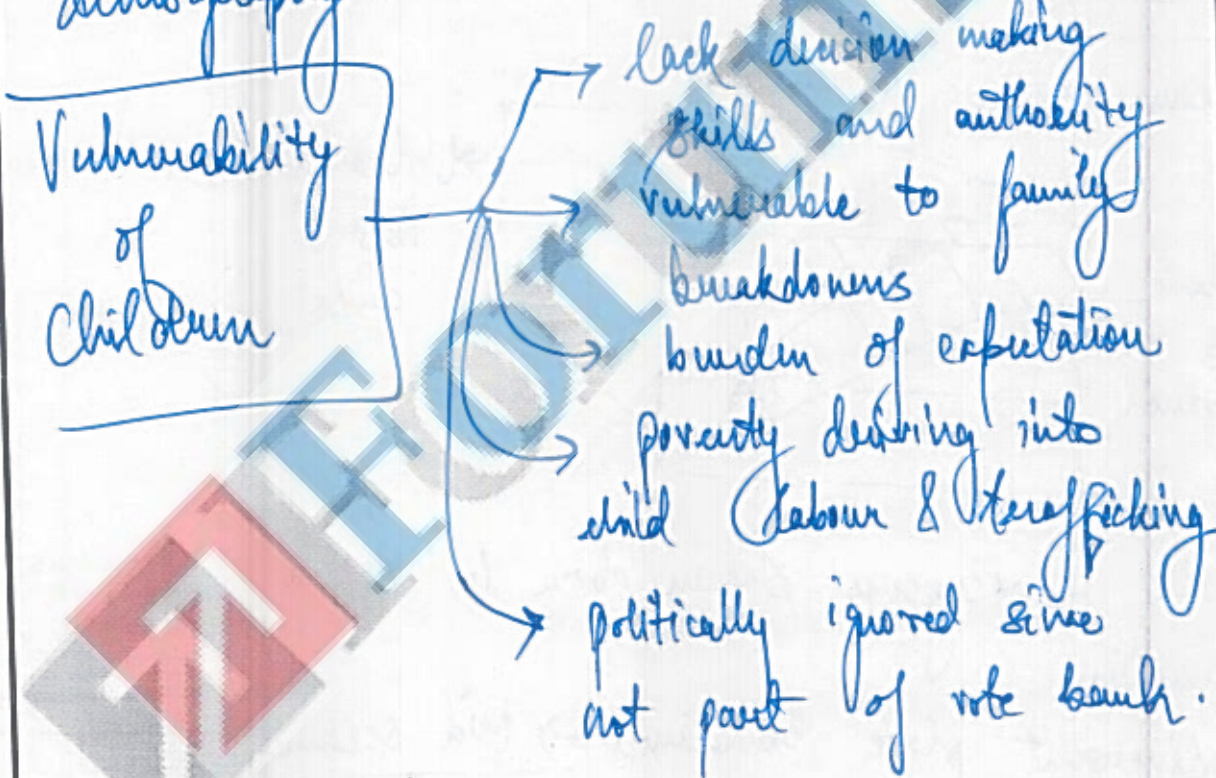 demography
Vulnerability
of
Children
lack decision making
skills and authority
vulnerable to family
breakdowns
burden of expectation
poverty driving into
child labour & trafficking
politically ignored since
not part of vote bank.
Forum